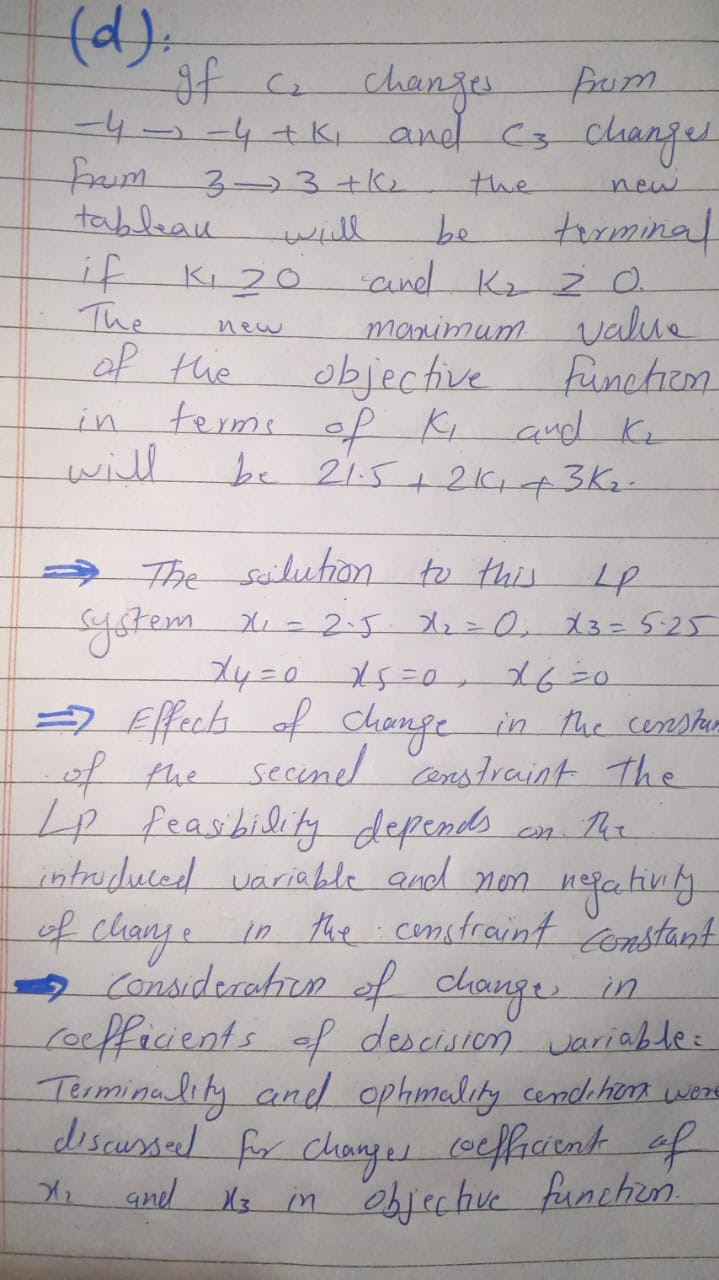 (d):
If C₂ changes from
-4 → -4 + K₁ and C₃ changes
from 3 → 3 + K₂. the new
tableau will be terminal
if K₁ ≥ 0 and K₂ ≥ 0.
The new maximum value
of the objective function
in terms of K₁ and K₂
will be 21.5 + 2K₁ + 3K₂.
⇒ The solution to this LP
system x₁ = 2.5 x₂ = 0, x₃ = 5.25
x₄ = 0 x₅ = 0, x₆ = 0
⇒ Effects of change in the constan
of the second constraint The
LP feasibility depends on the
introduced variable and non negativity
of change in the constraint constant
⇒ Consideration of changes in
coefficients of descision variable:
Terminality and optimality conditions were
discussed for changes coefficient of
x₂ and x₃ in objective function.